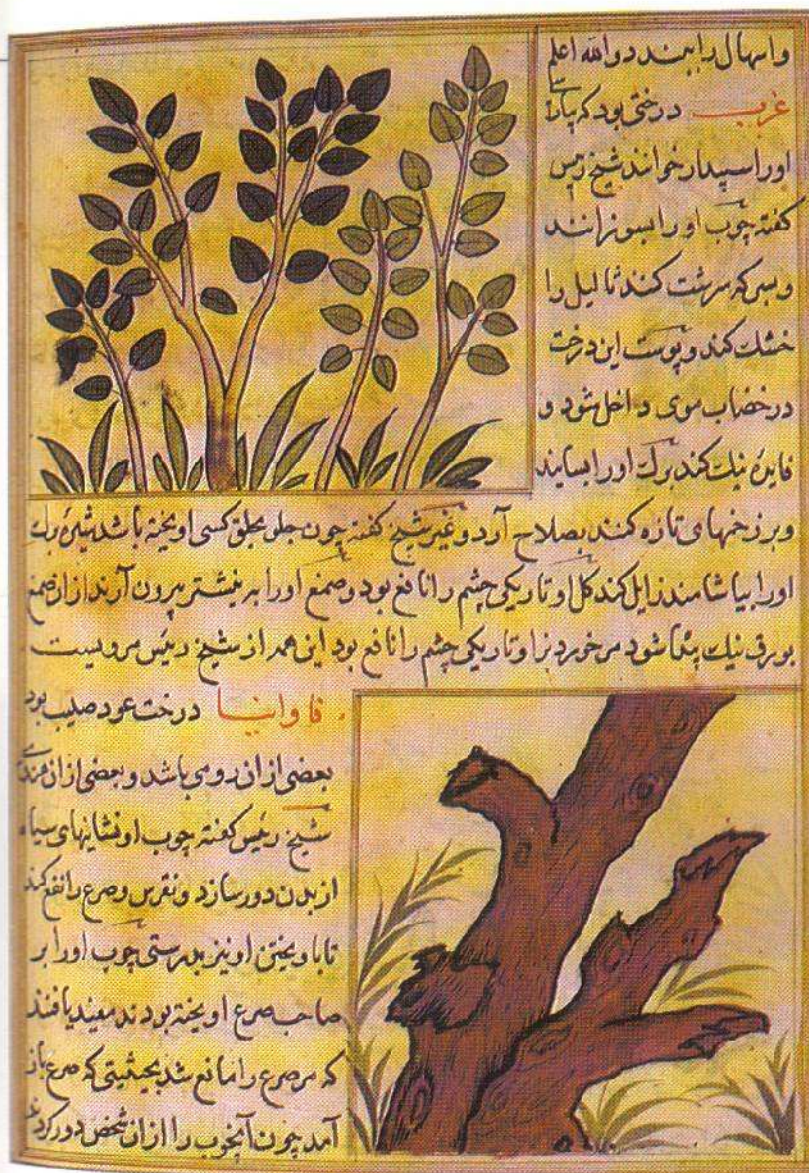 واسهال را ببندد والله اعلم
غرب درختی بود که پارسی
او را سپیدار خوانند شیخ رئیس
گفته چوب او را بسوزانند
و بسرکه سرشت کنند ثالیل را
خشک کند و پوست این درخت
در خضاب موی داخل شود و
فایده نیک کند برک او را بسایند
و بر زخمهای تازه کنند بصلاح آرد و غیر شیخ گفته چون جلو بحلق کسی آویخته باشد شیره برك
او را بیاشامند زایل کند کل او تاریکی چشم را نافع بود و صمغ او را به نیشتر بیرون آرند از آن صمغ
بورق نیک پیدا شود مر خوردن را و تاریکی چشم را نافع بود این همه از شیخ رئیس مرویست
فاوانیا درخت عود صلیب بود
بعضی از آن رومی باشد و بعضی از آن هندی
شیخ رئیس گفته چوب او نشانهای سیاه
از بدن دور سازد و نقرس و صرع را نفع کند
تا باویختن او نیز بدرستی چوب او را بر
صاحب صرع آویخته بودند مفید یافتند
که مر صرع را مانع شد بحیثیتی که صرع باز
آمد چون آنچوب را از آن شخص دور کرد